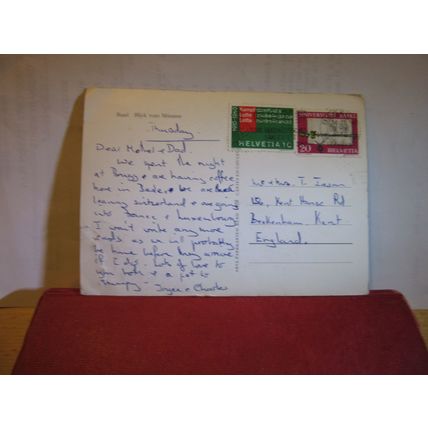 Basel Blick vom Münster
Thursday
Dear Mother & Dad,
We spent the night
at Brugg & are having coffee
here in Basle. We are
leaving Switzerland & are going
into France & Luxembourg
I won't write any more
cards as we will probably
be home before they arrive
if I do. Lots of love to
you both & a pat to
Joyce & Charles
1910-1960
HELVETIA 10
UNIVERSITÄT BASEL
20 HELVETIA
Mr & Mrs. T.
156, Kent House Rd
Beckenham. Kent
England.